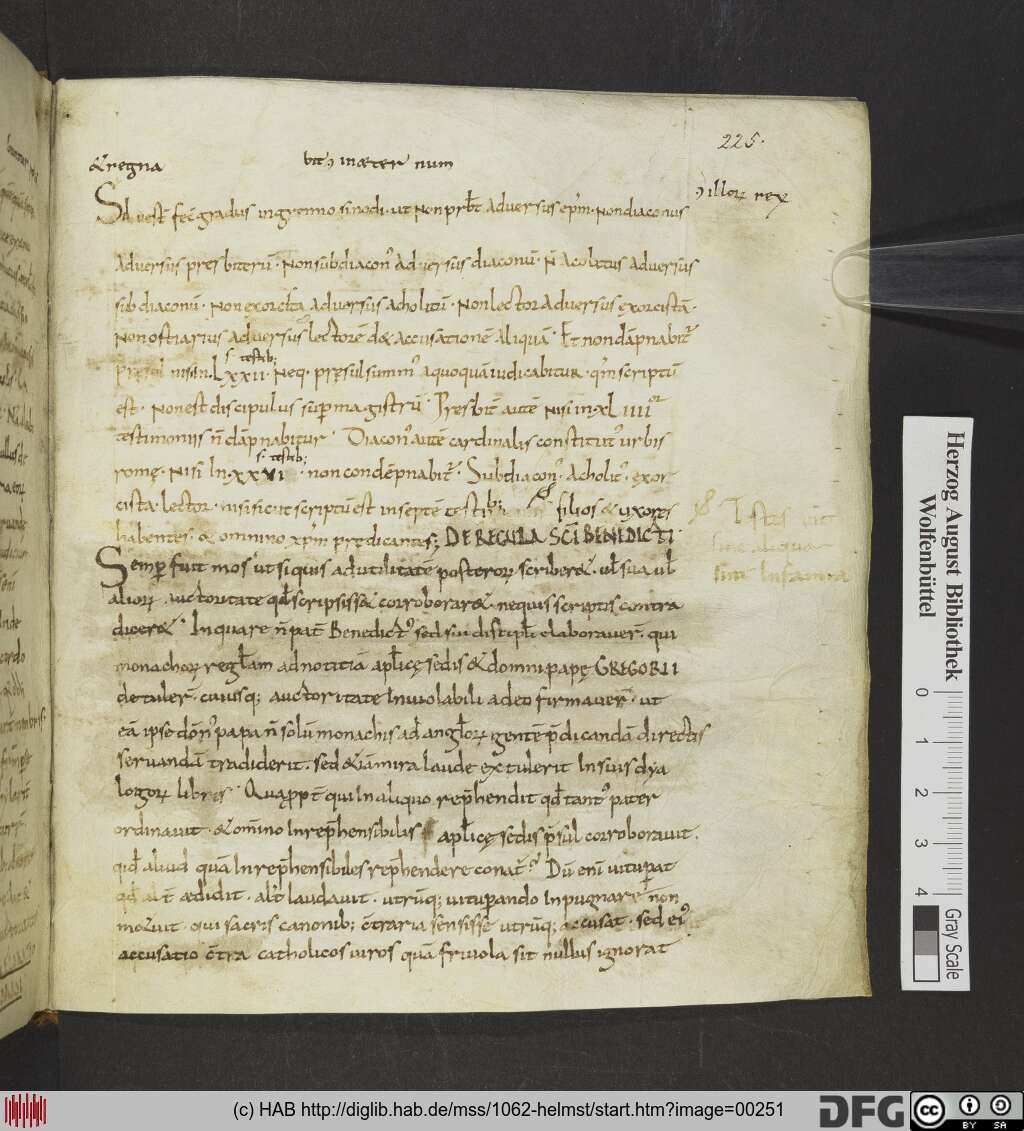 225.
& regna bit᷒ in æter num
᷒ illoꝝ rex
Sed est fec̄ gradus in gremio sinodi. ut Non prb̄t Adversus ep̄m. Non diaconus
Adversus presbiterū. Non subdiacon᷒ Adversus diaconū. N̄ Acolitus Adversus
sub diaconū. Non exorcista Adversus Acholitū. Non lector Adversus exorcistā.
Non ostiarius Adversus lectorē d& Accusationē Aliquā. Et non dāpnabit᷑
s. testib;
presul nisi in. lxxii. Neq. presul summ᷒ a quoquā iudicabitur. qm̄ scriptū
est. Non est discipulus sup̱ magistrū. Presbit̄ autē Nisi in. xliiii
testimoniis n̄ dāpnabitur. Diacon᷒ autē cardinalis constitut᷒ urbis
s. testib;
romę. Nisi In. xxvi. non condēpnabit᷑. Subdiacon᷒. Acholit᷒. exor
cista. lector. nisi sicut scriptū est in septē testib; filios & uxores
habentes. & omnino xp̄m prędicantes; DE REGULA SCI BENEDICTI
Testes
sine aliqua
sint Infamia
Semꝑ fuit mos ut si quis ad utilitatē posteroꝝ scriber& . ul̄ sua ul̄
alioꝝ auctoritate qd̄ scripsiss& corroborar& . nequis scriptis contra
dicer& . In quare n̄ pat̄ Benedict᷒ sed sui discipl̄i elaboraver̄. qui
monachoꝝ regl̄am ad notitiā apl̄icę sedis & domni papę GREGORII
detuler̄. cuiusq; auctoritate Inviolabili adeo firmaver̄. ut
eā ipse dōn᷒ papa n̄ solū monachis ad angloꝝ gentē p̄dicandā directis
servandā tradiderit. sed & iā mira laude extulerit In suis dya
logoꝝ libris. Quāpp̄t qui In aliquo rep̄hendit qd̄ tant᷒ pater
ordinavit. & om̄ino Inrep̄hensibilis apl̄icę sedis p̄sul corroboravit.
qid aliud quā Inrep̄hensibiles rep̄hendere conat᷑? Dū eni vitupat
qd alt̄ ædidit. alt̄ laudavit. utrūq; vituꝑando Inpugnare non
moluit. Qui sacris canonib; c̄traria sensisse utrūq; accusat. sed ei᷒
accusatio c̄tra catholicos viros quā frivola sit nullus ignorat
Herzog August Bibliothek
Wolfenbüttel
0 1 2 3 4
Gray Scale
(c) HAB http://diglib.hab.de/mss/1062-helmst/start.htm?image=00251
DFG
cc
BY SA